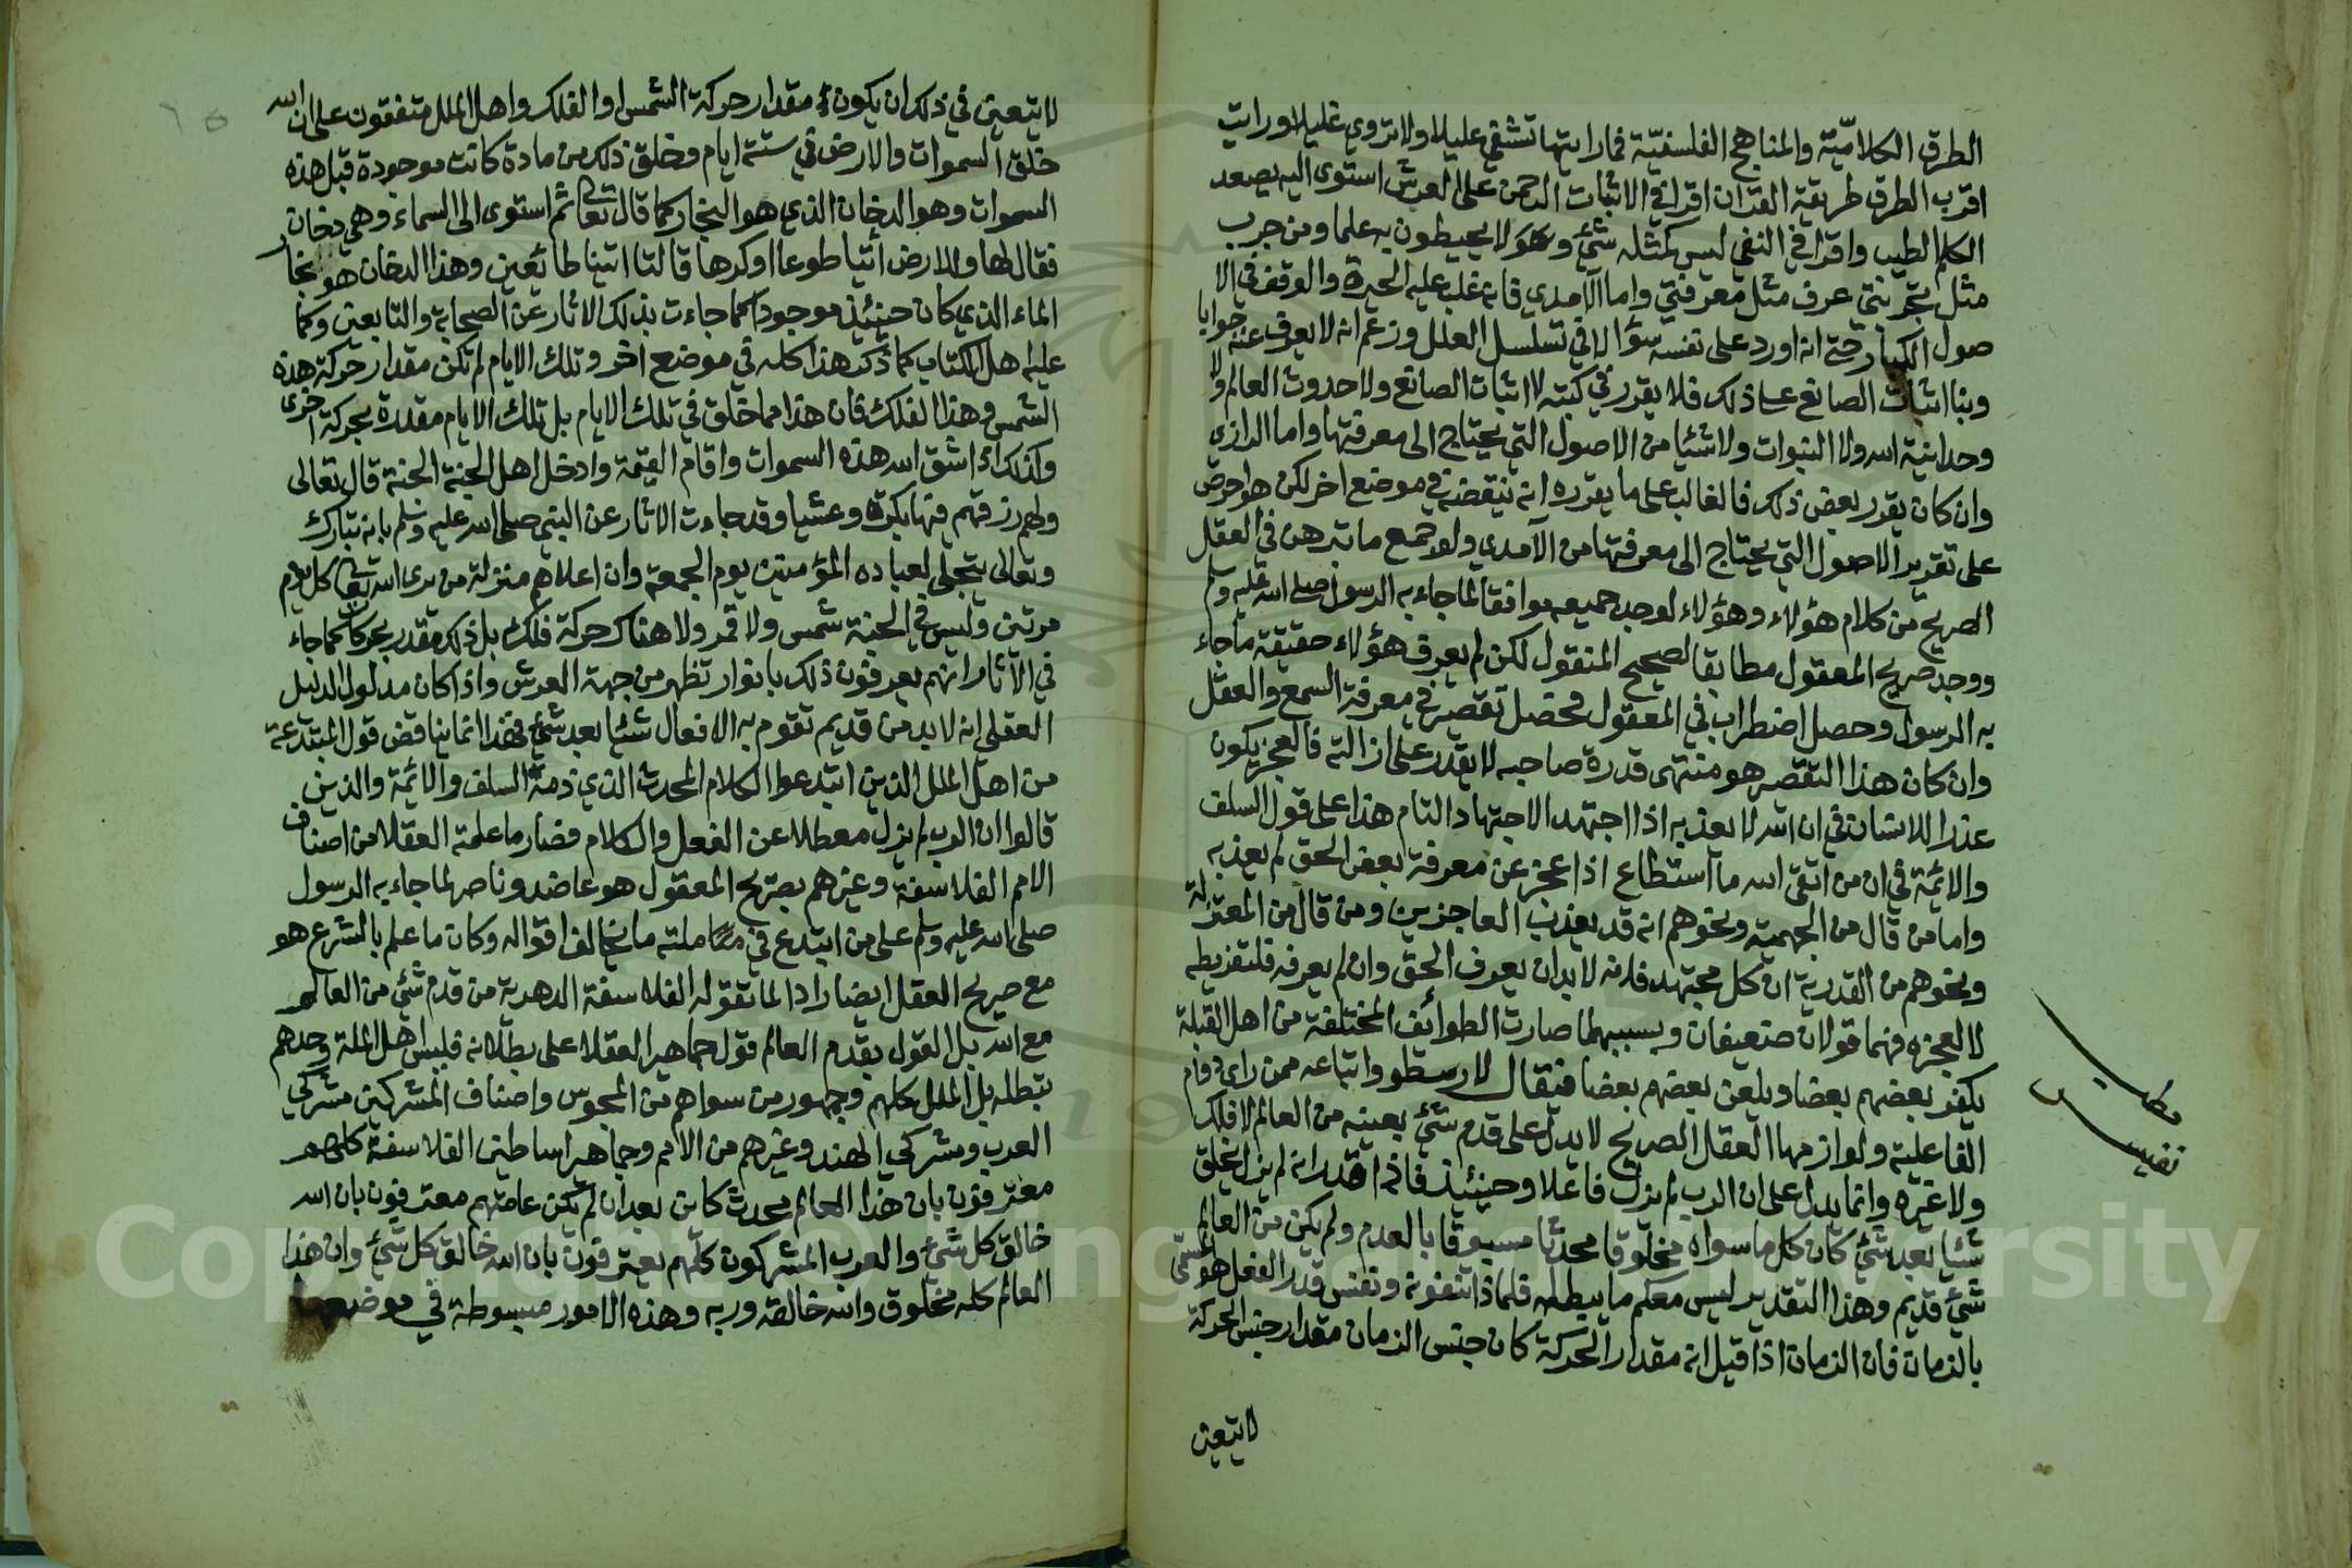 الطرق الكلاميّة والمناهج الفلسفيّة فما رايتها تشفي عليلا ولا تروي غليلا ورايت
اقرب الطرق طريقة القران اقرا في الاثبات الرحمن على العرش استوى اليه يصعد
الكلم الطيب واقرا في النفي ليس كمثله شئ ولا يحيطون به علما ومن جرب
مثل تجربتي عرف مثل معرفتي واما الآمدي فانه غلب عليه الحيرة والوقف في الا
صول الكبار حتى انه اورد على نفسه سؤالا في تسلسل العلل وزعم انه لا يعرف عنه جوابا
وبنا اثبات الصانع على ذلك فلا يقرر في كتبه لا اثبات الصانع ولا حدوث العالم ولا
وحدانية الله ولا النبوات ولا شئيا من الاصول التي يحتاج الى معرفتها واما الرازي
وان كان يقرر بعض ذلك فالغالب على ما يقرره انه ينقضه في موضع اخر لكن هو احرص
على تقرير الاصول التي يحتاج الى معرفتها من الآمدي ولو جمع ما تبرهن في العقل
الصريح من كلام هؤلاء وهؤلاء لوجد جميعه موافقا لما جاء به الرسول صلى الله عليه وسلم
ووجد صريح المعقول مطابقا لصحيح المنقول لكن لم يعرف هؤلاء حقيقة ما جاء
به الرسول وحصل اضطراب في المعقول فحصل تقصير في معرفة السمع والعقل
وان كان هذا التقصير هو منتهى قدرة صاحبه لا يقدر على ازالته فالعجز يكون
عذرا للانسان في ان الله لا يعذبه اذا اجتهد الاجتهاد التام هذا على قول السلف
والائمة في ان من اتقى الله ما استطاع اذا عجز عن معرفة بعض الحق لم يعذبه
واما من قال من الجهمية ونحوهم انه قد يعذب العاجزين ومن قال من المعتزلة
ونحوهم من القدرية ان كل مجتهد فانه لا بد ان يعرف الحق وان لم يعرفه فلتفريطه
لا لعجزه فهما قولان ضعيفان وبسببهما صارت الطوائف المختلفة من اهل القبلة
يكفر بعضهم بعضا ويلعن بعضهم بعضا فيقال لارسطو واتباعه ممن راى دوام
الفاعلية ولوازمها العقل الصريح لا يدل على قدم شئ بعينه من العالم لا فلك
ولا غيره وانما يدل على ان الرب لم يزل فاعلا وحينئذ فاذا قدر انه لم يزل يخلق
شئيا بعد شئ كان كل ما سواه مخلوقا محدثا مسبوقا بالعدم ولم يكن من العالم
شئ قديم وهذا التقدير ليس معكم ما يبطله فلماذا تنفونه ونفس قدر الفعل هو المسمى
بالزمان فان الزمان اذا قيل انه مقدار الحركة كان جنس الزمان مقدار جنس الحركة
لا يتعين
مطلب
نفيس
لا يتعين في ذلك ان يكون مقدار حركة الشمس او الفلك واهل الملل متفقون على ان الله
خلق السموات والارض في ستة ايام وخلق ذلك من مادة كانت موجودة قبل هذه
السموات وهو الدخان الذي هو البخار كما قال تعالى ثم استوى الى السماء وهي دخان
فقال لها وللارض ائتيا طوعا او كرها قالتا اتينا طائعين وهذا الدخان هو بخار
الماء الذي كان حينئذ موجودا كما جاءت بذلك الاثار عن الصحابة والتابعين وكما
عليه اهل الكتاب كما ذكر هذا كله في موضع اخر وتلك الايام لم تكن مقدار حركة هذه
الشمس وهذا الفلك فان هذا مما خلق في تلك الايام بل تلك الايام مقدرة بحركة اخرى
وكذلك اذا شق الله هذه السموات واقام القيمة وادخل اهل الجنة الجنة قال تعالى
ولهم رزقهم فيها بكرة وعشيا وقد جاءت الاثار عن النبي صلى الله عليه وسلم بانه تبارك
وتعالى يتجلى لعباده المؤمنين يوم الجمعة وان اعلاهم منزلة من يرى الله تعالى كل يوم
مرتين وليس في الجنة شمس ولا قمر ولا هناك حركة فلك بل ذلك مقدر بحركات كما جاء
في الآثار انهم يعرفون ذلك بانوار تظهر من جهة العرش واذا كان مدلول الدليل
العقلي انه لا بد من قديم تقوم به الافعال شئيا بعد شئ فهذا انما يناقض قول المبتدعة
من اهل الملل الذين ابتدعوا الكلام المحدث الذي ذمه السلف والائمة والذين
قالوا ان الرب لم يزل معطلا عن الفعل والكلام فصار ما علمه العقلا من اصناف
الامم الفلاسفة وغيرهم بصريح المعقول هو عاضد وناصر لما جاء به الرسول
صلى الله عليه وسلم على من ابتدع في ملته ما يخالف اقواله وكان ما علم بالشرع هو
مع صريح العقل ايضا رادا لما تقوله الفلاسفة الدهرية من قدم شئ من العالم
مع الله بل القول بقدم العالم قول جماهير العقلا على بطلانه فليس اهل الملة وحدهم
تبطله بل الملل كلهم وجمهور من سواهم من المجوس واصناف المشركين مشركي
العرب ومشركي الهند وغيرهم من الامم وجماهير اساطين الفلاسفة كلهم
معترفون بان هذا العالم محدث كائن بعد ان لم يكن عامتهم معترفون بان الله
خالق كل شئ والعرب المشركون كلهم يعترفون بان الله خالق كل شئ وان هذا
العالم كله مخلوق وانه خالقه وربه وهذه الامور مبسوطة في موضعها